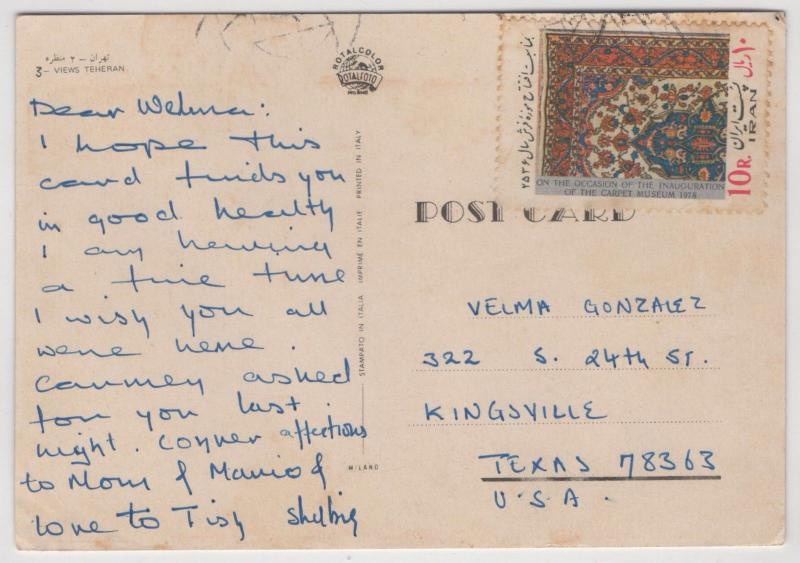 تهران – ۳ منظره
3 - VIEWS TEHERAN
Dear Velma:
I hope this
card finds you
in good health
I am having
a fine time
I wish you all
were here.
Carmey asked
for you last
night. Conver affections
to Mom & Mario &
love to Tish Shelbig
ROTALCOLOR
ROTALFOTO
MILANO
STAMPATO IN ITALIA IMPRIMÉ EN ITALIE PRINTED IN ITALY
MILANO
بمناسبت افتتاح موزه فرش سال ۲۵۳۶
ON THE OCCASION OF THE INAUGURATION
OF THE CARPET MUSEUM 1978
۱۰ ریال
پست ایران
IRAN
10R.
POST CARD
VELMA GONZALEZ
322 S. 24th ST.
KINGSVILLE
TEXAS 78363
U.S.A.